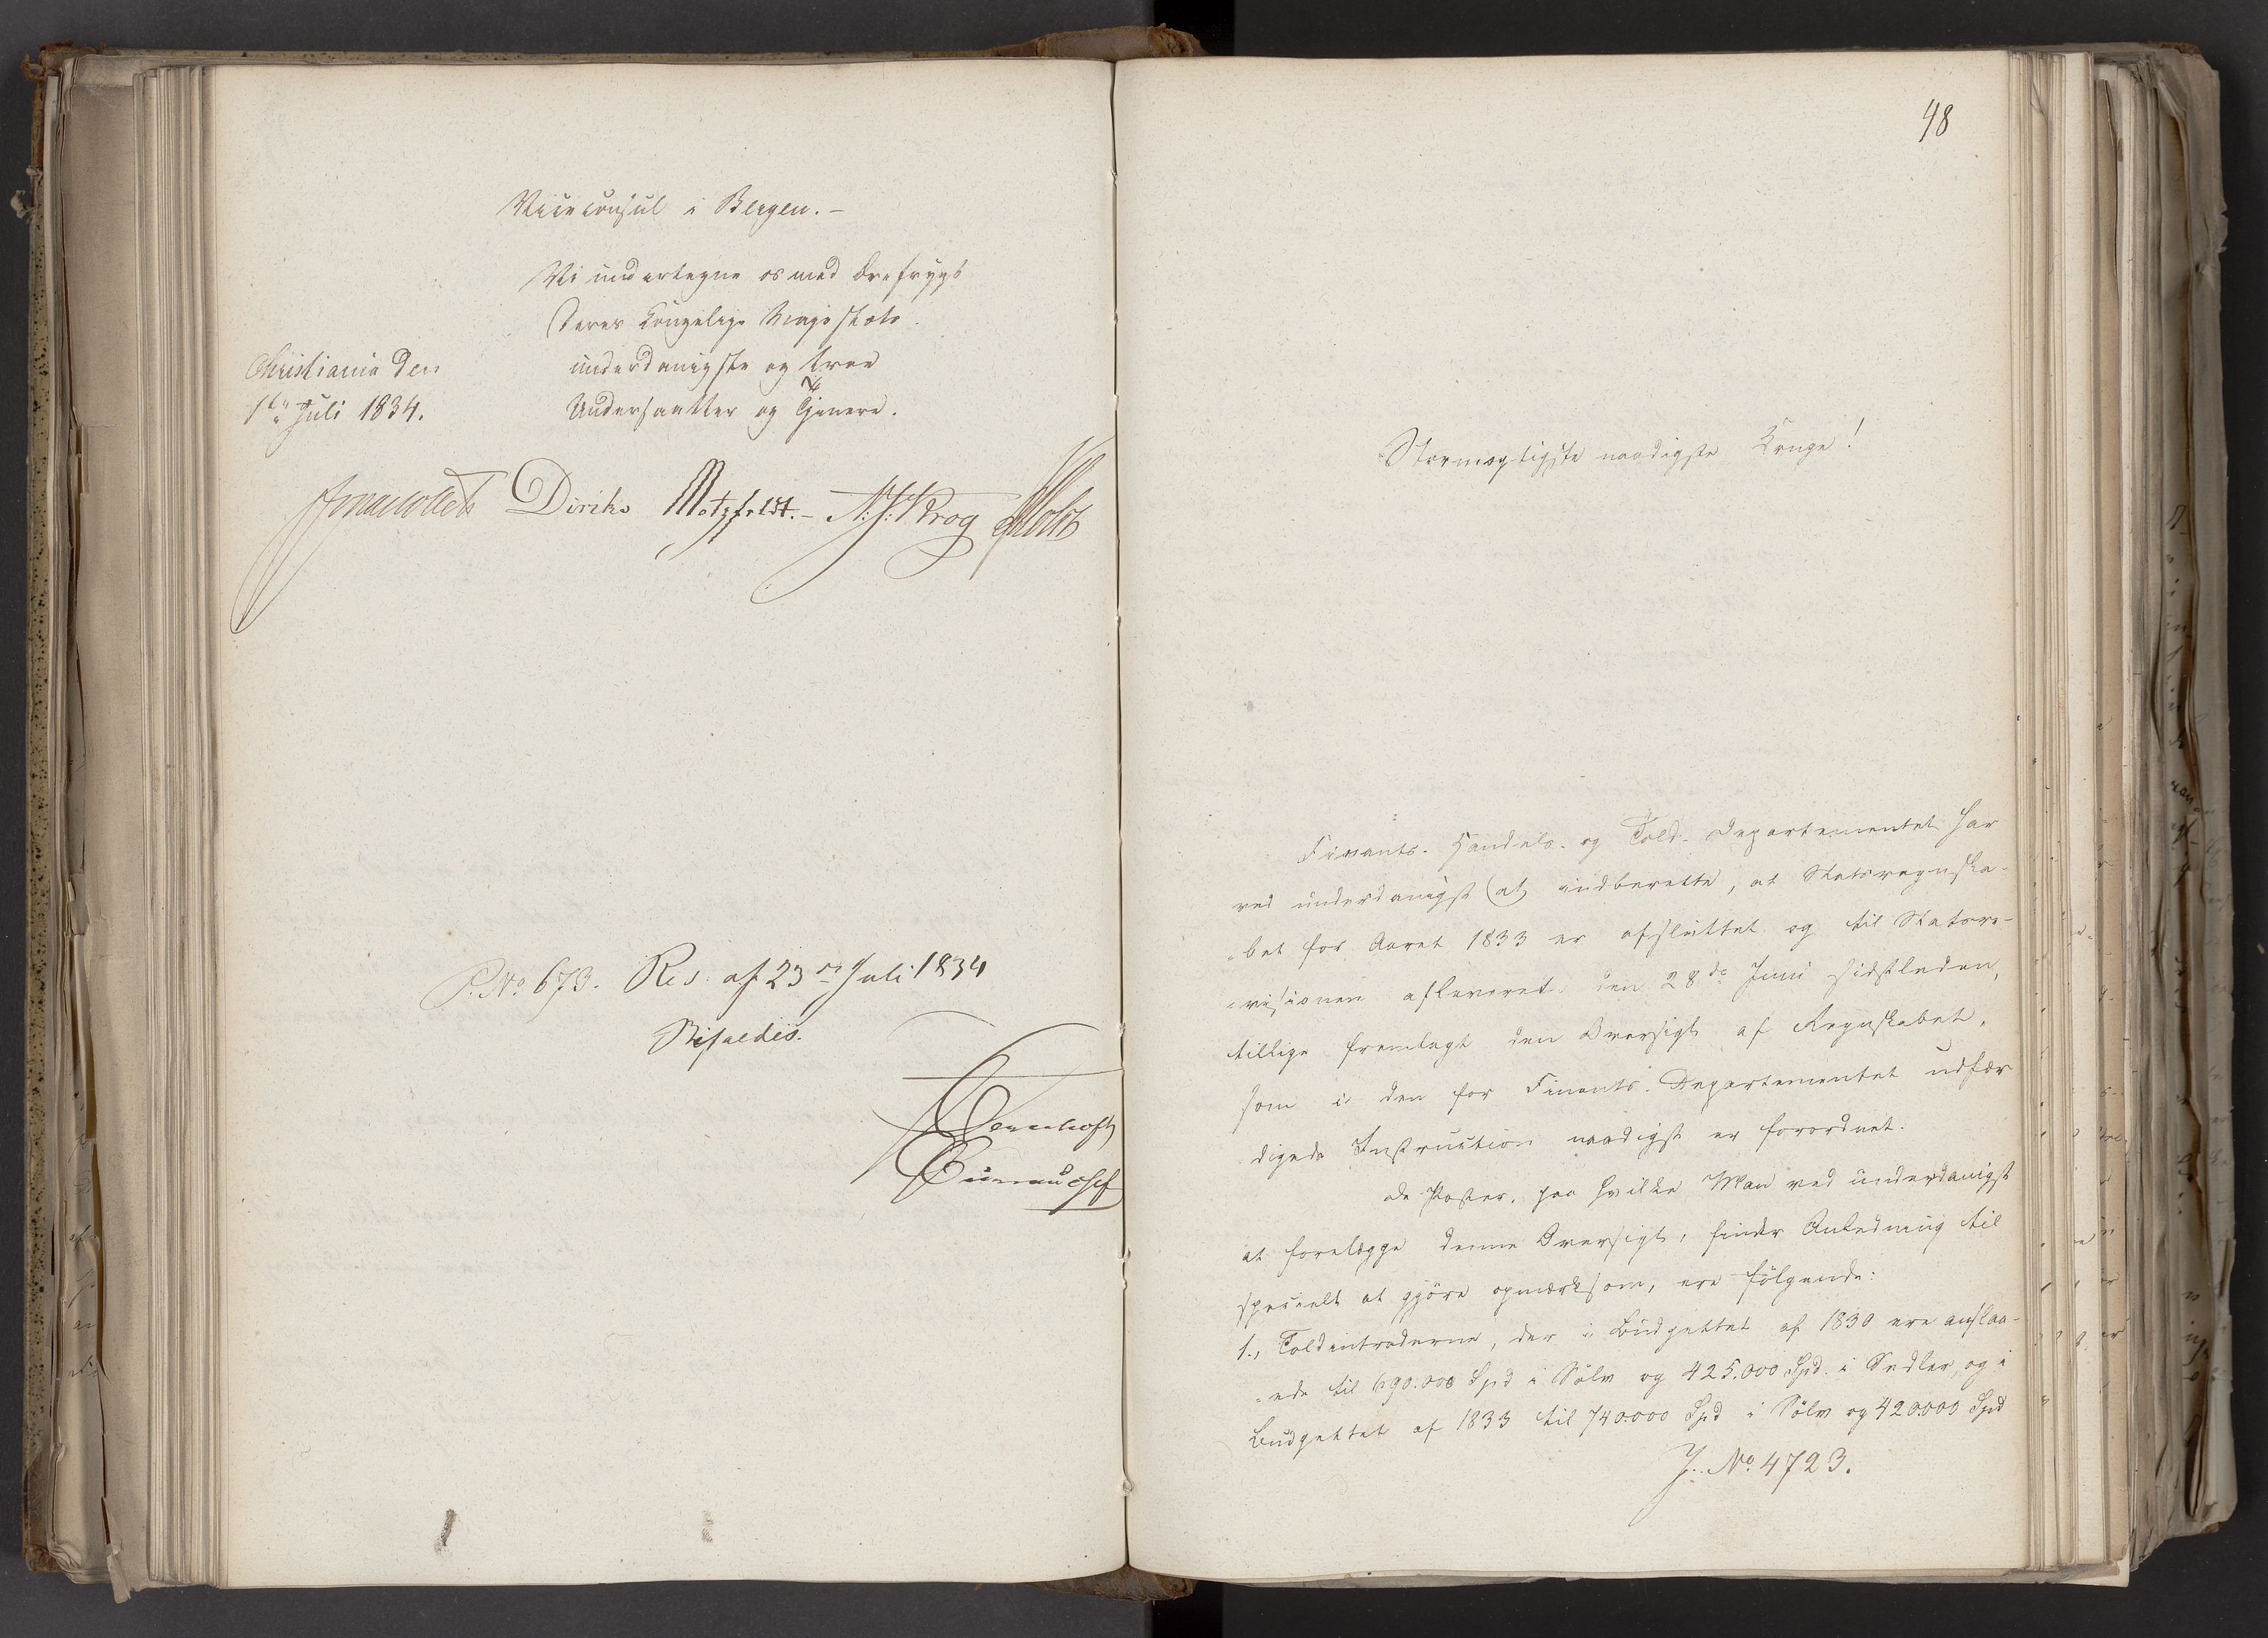 Viceconsul i Bergen. -
Vi undertegne os med Ærefrygt
Deres Kongelige Majestæts
Christiania den
underdanigste og troe
1ste Juli 1834.
Undersaatter og Tjenere.
Jonas Collett Diriks Motzfeldt. - N. J. Krog Holst
P. No 673. Res. af 23de Juli 1834
Bifaldes.
48
Stormægtigste naadigste Konge!
Finants- Handels- og Told-Departementet har
ved underdanigst at indberette, at Statsregnska-
bet for Aaret 1833 er afsluttet og til Statsre-
visionen afleveret den 28de Juni sidstleden,
tillige fremlagt den Oversigt af Regnskabet,
som i den for Finants-Departementet udfær
digede Instruction naadigst er forordnet.
De Poster, paa hvilke Man ved underdanigst
at forelægge denne Oversigt, finder Anledning til
specielt at gjöre opmærksom, ere fölgende:
1., Toldintraderne, der i Budgettet af 1830 ere anslaa-
ede til 690.000 Spd i Sölv og 425.000 Spd. i Sedler, og i
Budgettet af 1833 til 740.000 Spd i Sölv og 420.000 Spd
J. No 4723.